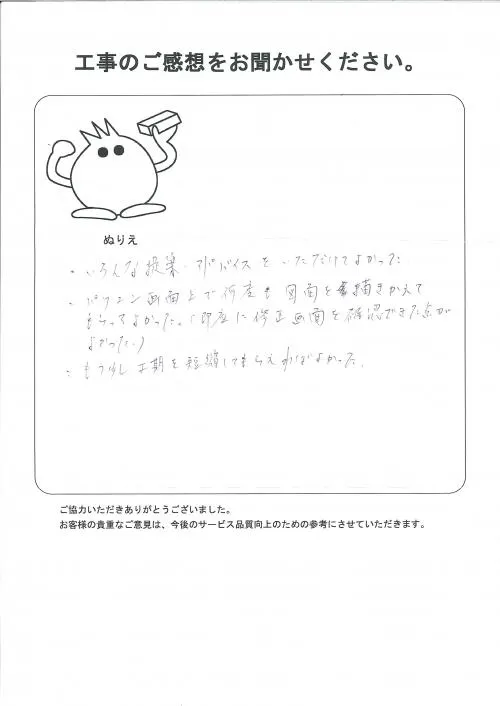 工事のご感想をお聞かせください。
ぬりえ
・いろんな提案・アドバイスをいただけてよかった
・パソコン画面上で何度も図面を描きかえて
もらってよかった。(即座に修正画面を確認できた点が
よかった。)
・もう少し工期を短縮してもらえればよかった。
ご協力いただきありがとうございました。
お客様の貴重なご意見は、今後のサービス品質向上のための参考にさせていただきます。